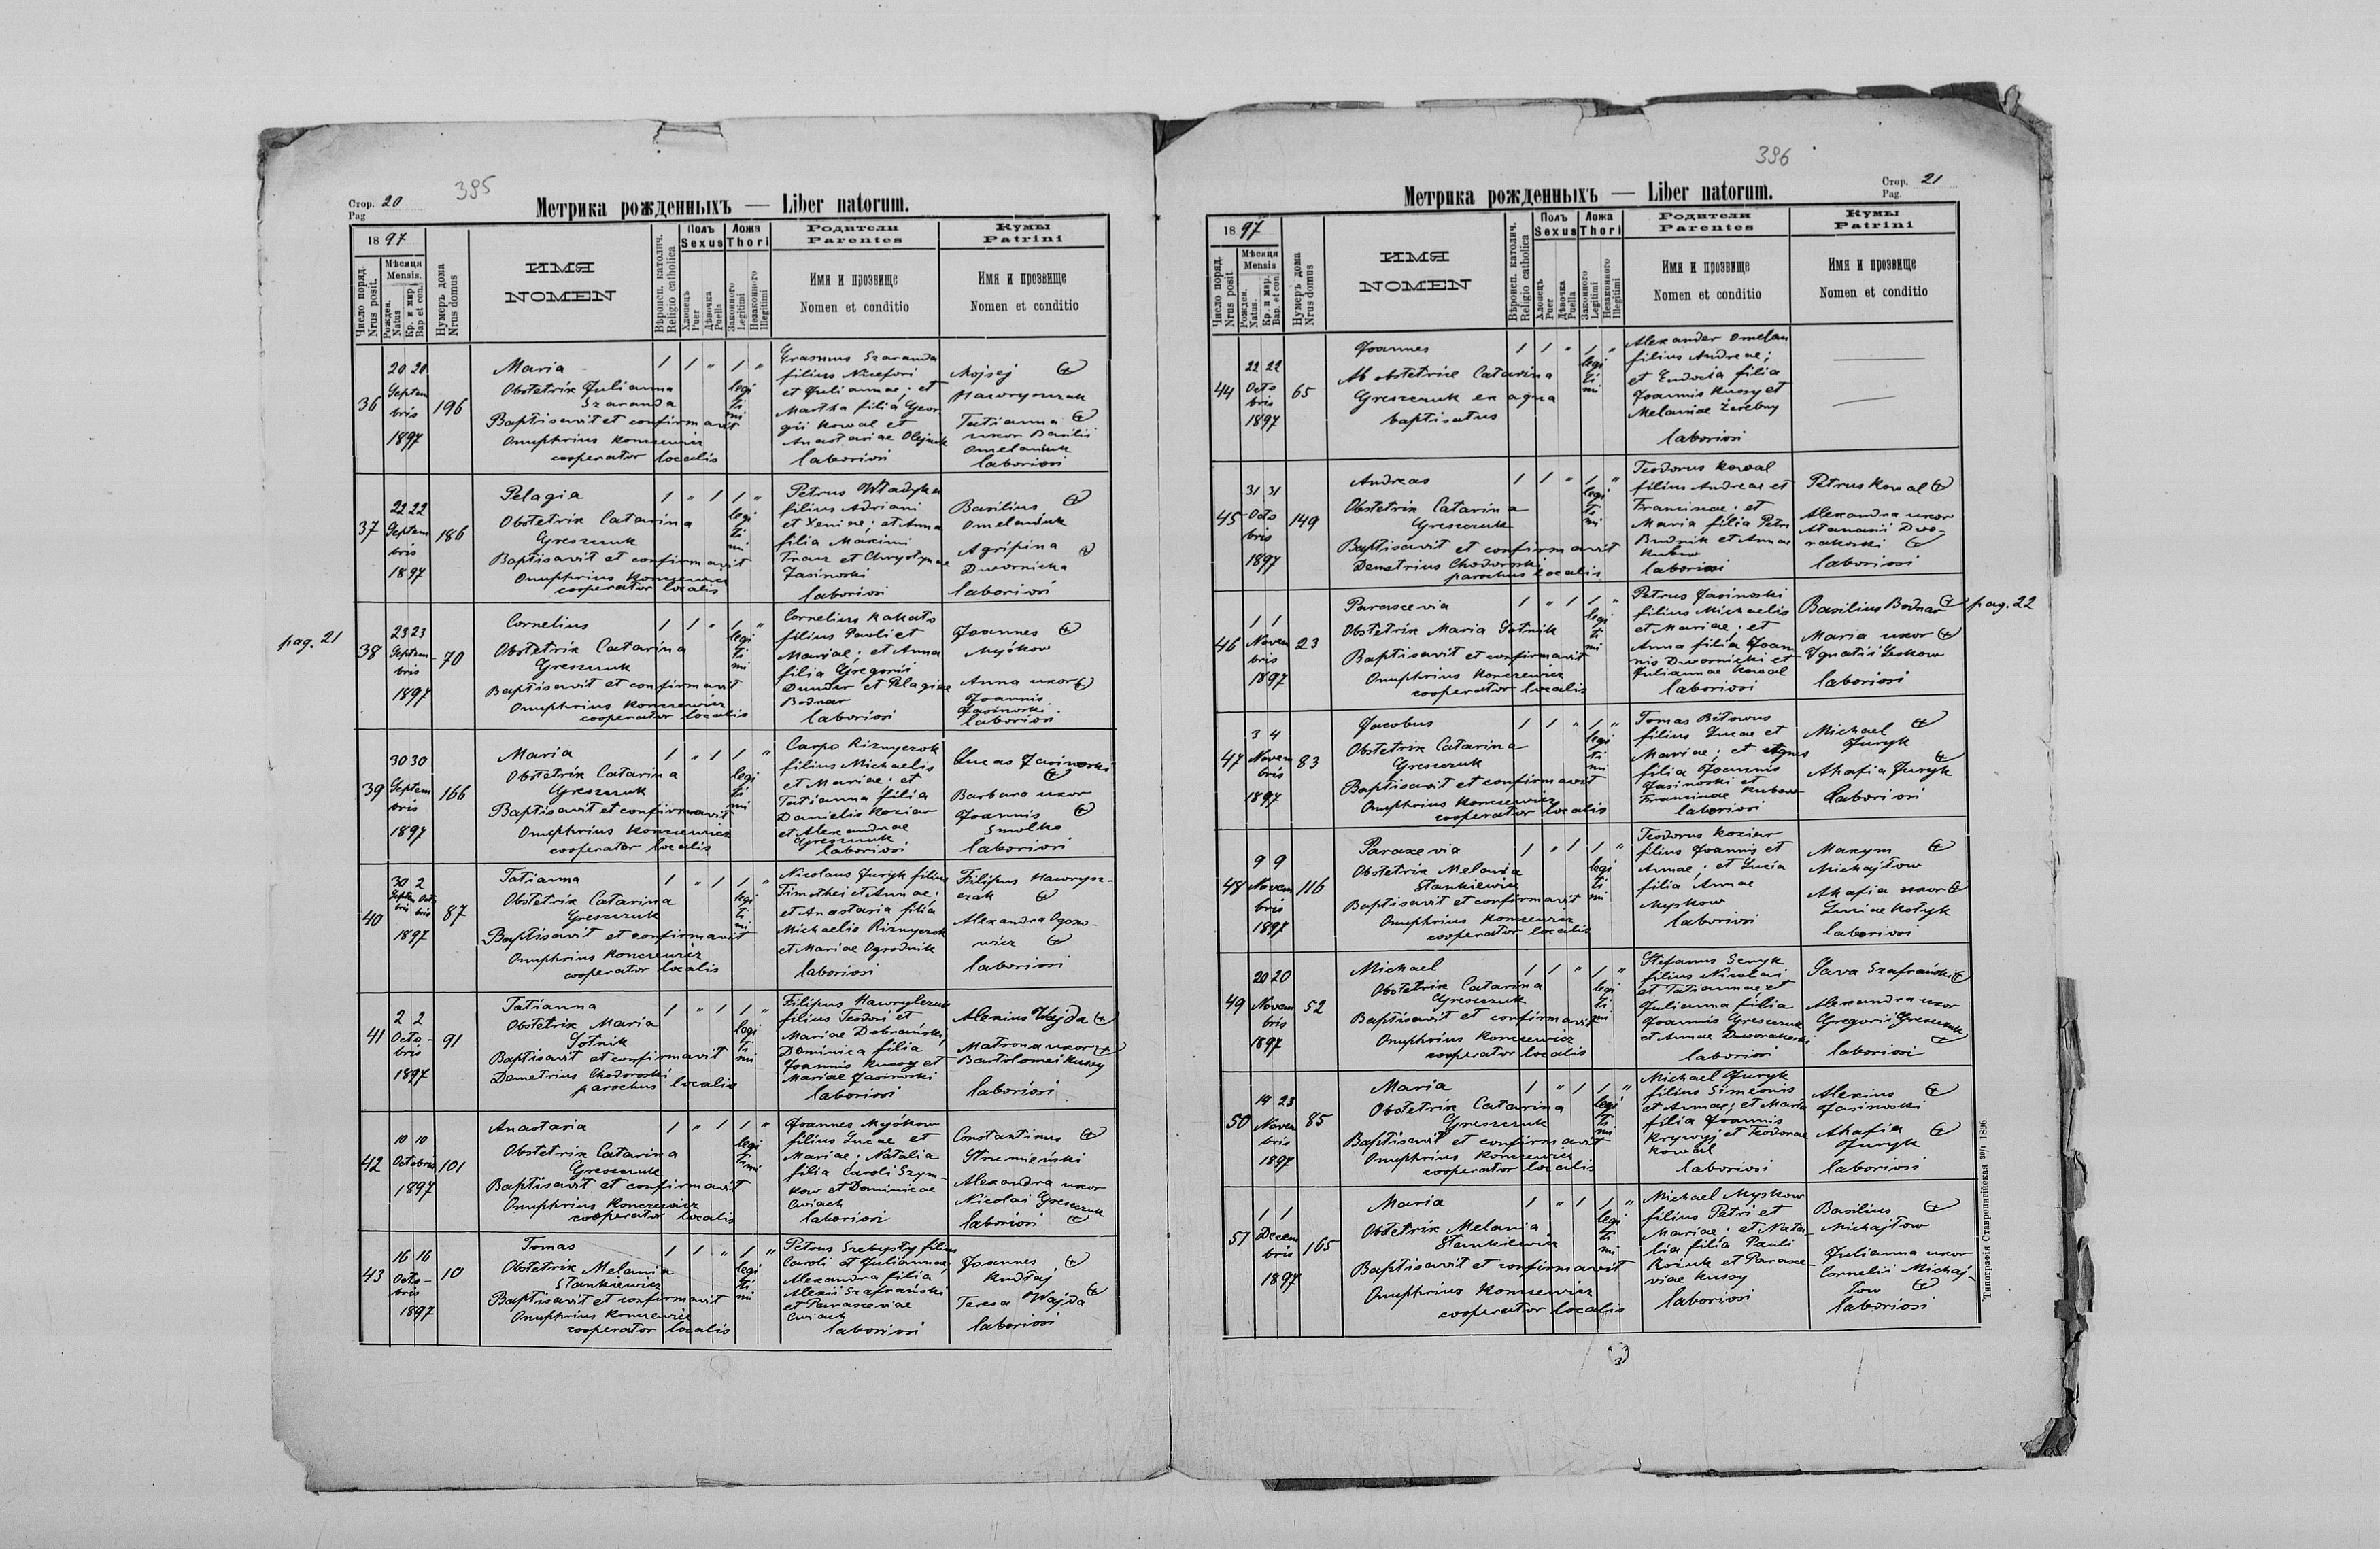 395
Стор. 20
Pag
Метрика рожденныхъ — Liber natorum.
1897
Число поряд.
Nrus posit.
Мѣсяця
Mensis.
Рожден.
Natus
Кр. и мир
Bap et con.
Нумеръ дома
Nrus domus
ИМЯ
NOMEN
Вѣроисп. католич.
Religio catholica
Полъ
Sexus
Хлопецъ
Puer
Дѣвочка
Puella
Ложа
Thori
Законного
Legitimi
Незаконного
Illegitimi
Родители
Parentes
Имя и прозвище
Nomen et conditio
Кумы
Patrini
Имя и прозвище
Nomen et conditio
36
20 20
Septem
bris
1897
196
Maria
Obstetrix Julianna
Szaranda
Baptisavit et confirmavit
Onuphrius Konczewicz
cooperator localis
1 1 " 1 "
legi
ti
mi
Erasmus Szaranda
filius Nicefori
et Juliannae; et
Martha filia Geor
gii Kowal et
Anastasiae Olejnik
laboriosi
Mojsej
Hawryszczak
Tatianna
uxor Basilii
Omelaniuk
laboriosi
37
22 22
Septem
bris
1897
186
Pelagia
Obstetrix Catarina
Greszczuk
Baptisavit et confirmavit
Onuphrius Konczewicz
cooperator localis
1 " 1 1 "
legi
ti
mi
Petrus Władyka
filius Adriani
et Xeniae; et Anna
filia Maximi
Franz et Chrystynae
Jasinoski
laboriosi
Basilius
Omelaniuk
Agripina
Dwornicka
laboriosi
pag. 21
38
23 23
Septem-
bris
1897
70
Cornelius
Obstetrix Catarina
Greszczuk
Baptisavit et confirmavit
Onuphrius Konczewicz
cooperator localis
1 1 " 1 "
legi
ti
mi
Cornelius Kakato
filius Pauli et
Mariae; et Anna
filia Gregorii
Dunder et Pelagiae
Bodnar
laboriosi
Joannes
Myśkow
Anna uxor
Joannis
Jasinoski
laboriosi
39
30 30
Septem
bris
1897
166
Maria
Obstetrix Catarina
Greszczuk
Baptisavit et confirmavit
Onuphrius Konczewicz
cooperator localis
1 " 1 1 "
legi
ti
mi
Carpo Riznyczok
filius Michaelis
et Mariae; et
Tatianna filia
Danielis Koziar
et Alexandrae
Greszczuk
laboriosi
Lucas Jasinoski
Barbara uxor
Joannis
Smolko
laboriosi
40
30 2
Septem Octo
bris bris
1897
87
Tatianna
Obstetrix Catarina
Greszczuk
Baptisavit et confirmavit
Onuphrius Konczewicz
cooperator localis
1 " 1 1 "
legi
ti
mi
Nicolaus Juryk filius
Timothei et Annae;
et Anastasia filia
Michaelis Riznyczok
et Mariae Ogrodnik
laboriosi
Filipus Hawrysz-
czak
Alexandra Ogono-
wicz
laboriosi
41
2 2
Octo-
bris
1897
91
Tatianna
Obstetrix Maria
Sotnik
Baptisavit et confirmavit
Demetrius Chodoroski
parochus localis
1 " 1 1 "
legi
ti
mi
Filipus Hawrylczuk
filius Teodori et
Mariae Dobrański;
Dominica filia
Joannis Kussy et
Mariae Jasinoski
laboriosi
Alexius Wajda
Matrona uxor
Bartolomei Kussy
laboriosi
42
10 10
Octobris
1897
101
Anastasia
Obstetrix Catarina
Greszczuk
Baptisavit et confirmavit
Onuphrius Konczewicz
cooperator localis
1 " 1 1 "
legi
ti
mi
Joannes Myśkow
filius Lucae et
Mariae; Natalia
filia Caroli Szym-
kow et Dominicae
Cwiach
laboriosi
Constantinus
Strumieński
Alexandra uxor
Nicolai Greszczuk
laboriosi
43
16 16
Octo-
bris
1897
10
Tomas
Obstetrix Melania
Stankiewicz
Baptisavit et confirmavit
Onuphrius Konczewicz
cooperator localis
1 1 " 1 "
legi
ti
mi
Petrus Szebysty filius
Caroli et Juliannae,
Alexandra filia
Alexii Szafrański
et Parasceviae
Cwiach
laboriosi
Joannes
Kudłaj
Teresa Wajda
laboriosi
396
Стор. 21
Pag.
Метрика рожденныхъ — Liber natorum.
1897
Число поряд.
Nrus posit
Мѣсяця
Mensis
Рожден.
Natus.
Кр. и мир.
Bap. et con
Нумеръ дома
Nrus domus
ИМЯ
NOMEN
Вѣроисп. католич.
Religio catholica
Полъ
Sexus
Хлопецъ
Puer
Дѣвочка
Puella
Ложа
Thori
Законного
Legitimi
Незаконного
Illegitimi
Родители
Parentes
Имя и прозвище
Nomen et conditio
Кумы
Patrini
Имя и прозвище
Nomen et conditio
44
22 22
Octo
bris
1897
65
Joannes
Ab obstetrice Catarina
Greszczuk ex aqua
baptisatus
1 1 " 1 "
legi
ti
mi
Alexander Omelan
filius Andreae;
et Eudocia filia
Joannis Kussy et
Melaniae Żerebny
laboriosi
45
31 31
Octo
bris
1897
149
Andreas
Obstetrix Catarina
Greszczuk
Baptisavit et confirmavit
Demetrius Chodoroski
parochus localis
1 1 " 1 "
legi
ti
mi
Teodorus Kowal
filius Andreae et
Francisцae; et
Maria filia Petri
Budnik et Annae
Kubow
laboriosi
Petrus Kowal
Alexandra uxor
Atanasii Dwo-
rakoski
laboriosi
46
1 1
Novem
bris
1897
23
Parascevia
Obstetrix Maria Sotnik
Baptisavit et confirmavit
Onuphrius Konczewicz
cooperator localis
1 " 1 1 "
legi
ti
mi
Petrus Jasinoski
filius Michaelis
et Mariae; et
Anna filia Joan
nis Dwornicki et
Juliannae Kowal
laboriosi
Basilius Bodnar
Maria uxor
Ignatii Leskow
laboriosi
pag. 22
47
3 4
Novem
bris
1897
83
Jacobus
Obstetrix Catarina
Greszczuk
Baptisavit et confirmavit
Onuphrius Konczewicz
cooperator localis
1 1 " 1 "
legi
ti
mi
Tomas Bitowus
filius Lucae et
Mariae; et Agnes
filia Joannis
Jasinoski et
Franciscae Kubow
laboriosi
Michael
Juryk
Ahafia Juryk
laboriosi
48
9 9
Novem
bris
1897
116
Parascevia
Obstetrix Melania
Stankiewicz
Baptisavit et confirmavit
Onuphrius Konczewicz
cooperator localis
1 " 1 1 "
legi
ti
mi
Teodorus Koziar
filius Joannis et
Annae; et Lucia
filia Annae
Myskow
laboriosi
Maxym
Michajłow
Ahafia uxor
Lucae Kotyk
laboriosi
49
20 20
Novem
bris
1897
52
Michael
Obstetrix Catarina
Greszczuk
Baptisavit et confirmavit
Onuphrius Konczewicz
cooperator localis
1 1 " 1 "
legi
ti
mi
Stefanus Senyk
filius Nicolai
et Tatiannae et
Julianna filia
Joannis Greszczuk
et Annae Dworakoski
laboriosi
Sava Szafrański
Alexandra uxor
Gregorii Greszczuk
laboriosi
50
14 23
Novem
bris
1897
85
Maria
Obstetrix Catarina
Greszczuk
Baptisavit et confirmavit
Onuphrius Konczewicz
cooperator localis
1 " 1 1 "
legi
ti
mi
Michael Juryk
filius Simeonis
et Annae; et Marta
filia Joannis
Krywyj et Teodorae
Kowal
laboriosi
Alexius
Jasinoski
Ahafia
Juryk
laboriosi
51
1 1
Decem
bris
1897
165
Maria
Obstetrix Melania
Stankiewicz
Baptisavit et confirmavit
Onuphrius Konczewicz
cooperator localis
1 " 1 1 "
legi
ti
mi
Michael Myskow
filius Petri et
Mariae; et Nata
lia filia Pauli
Rożuk et Parasce-
viae Kussy
laboriosi
Basilius
Michajłow
Julianna uxor
Cornelii Michaj-
łow
laboriosi
Типографія Ставропигійская 1896.
3